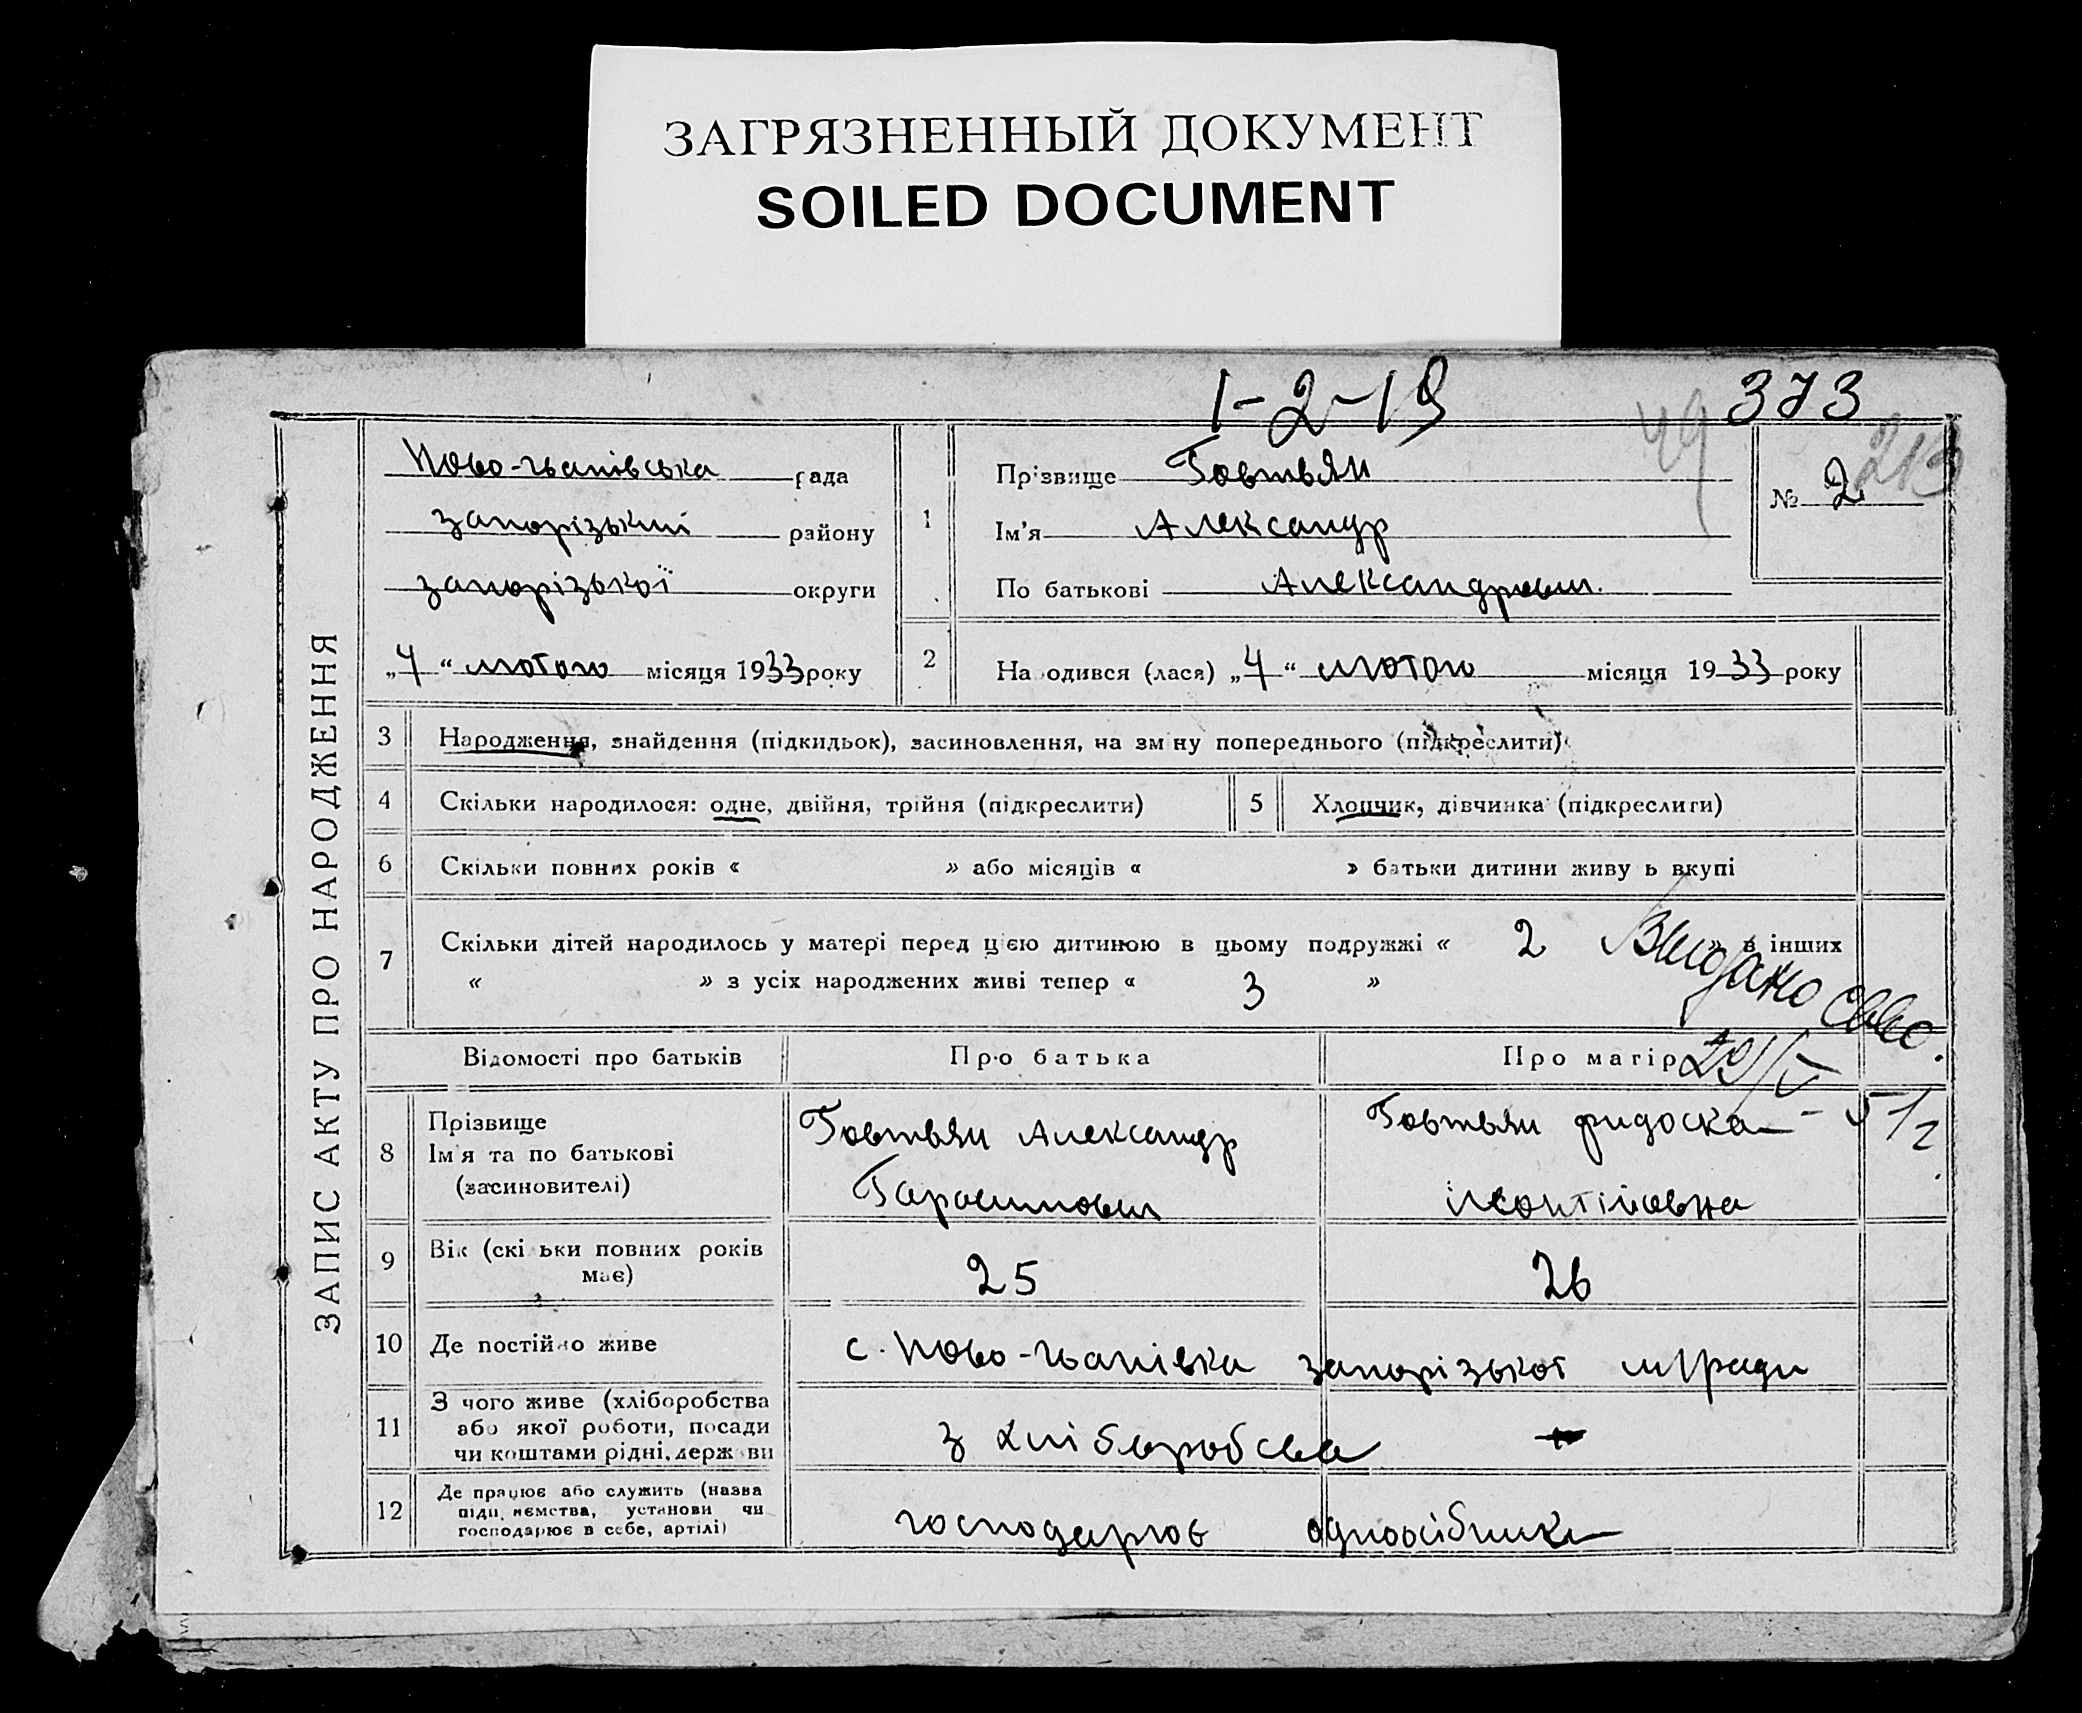 ЗАГРЯЗНЕННЫЙ ДОКУМЕНТ
SOILED DOCUMENT
1-2-19
373
49
213
ЗАПИС АКТУ ПРО НАРОДЖЕННЯ
рада
запорізький району
запорізької округи
„4“ лютого місяця 1933 року
1
Прізвище Говтьян
Ім'я Александр
По батькові Александрович
№ 2
2 На одився (лася) „4“ лютого місяця 1933 року
3 Народження, знайдення (підкидьок), засиновлення, на зм ну попереднього (підкреслити)
4 Скільки народилося: одне, двійня, трійня (підкреслити)
5 Хлопчик, дівчинка (підкреслити)
6 Скільки повних років « » або місяців « » батьки дитини живу ь вкупі
7 Скільки дітей народилось у матері перед цією дитиною в цьому подружжі « 2 » в інших
« » з усіх народжених живі тепер « 3 »
Видано свво.
29/V-51г.
Відомості про батьків
Про батька
Про матір
8 Прізвище
Ім'я та по батькові
(засиновителі)
Говтьян Александр
Гарасимович
Говтьян
9 Вік (скі ьки повних років
має)
25
26
10 Де постійно живе
с. запорізької м/ради
11 З чого живе (хліборобства
або якої роботи, посади
чи коштами рідні, держ ви
з хліборобсва
12 Де працює або служить (назва
підп ємства, установи чи
господарює в себе, артілі)
господарює одноосібник